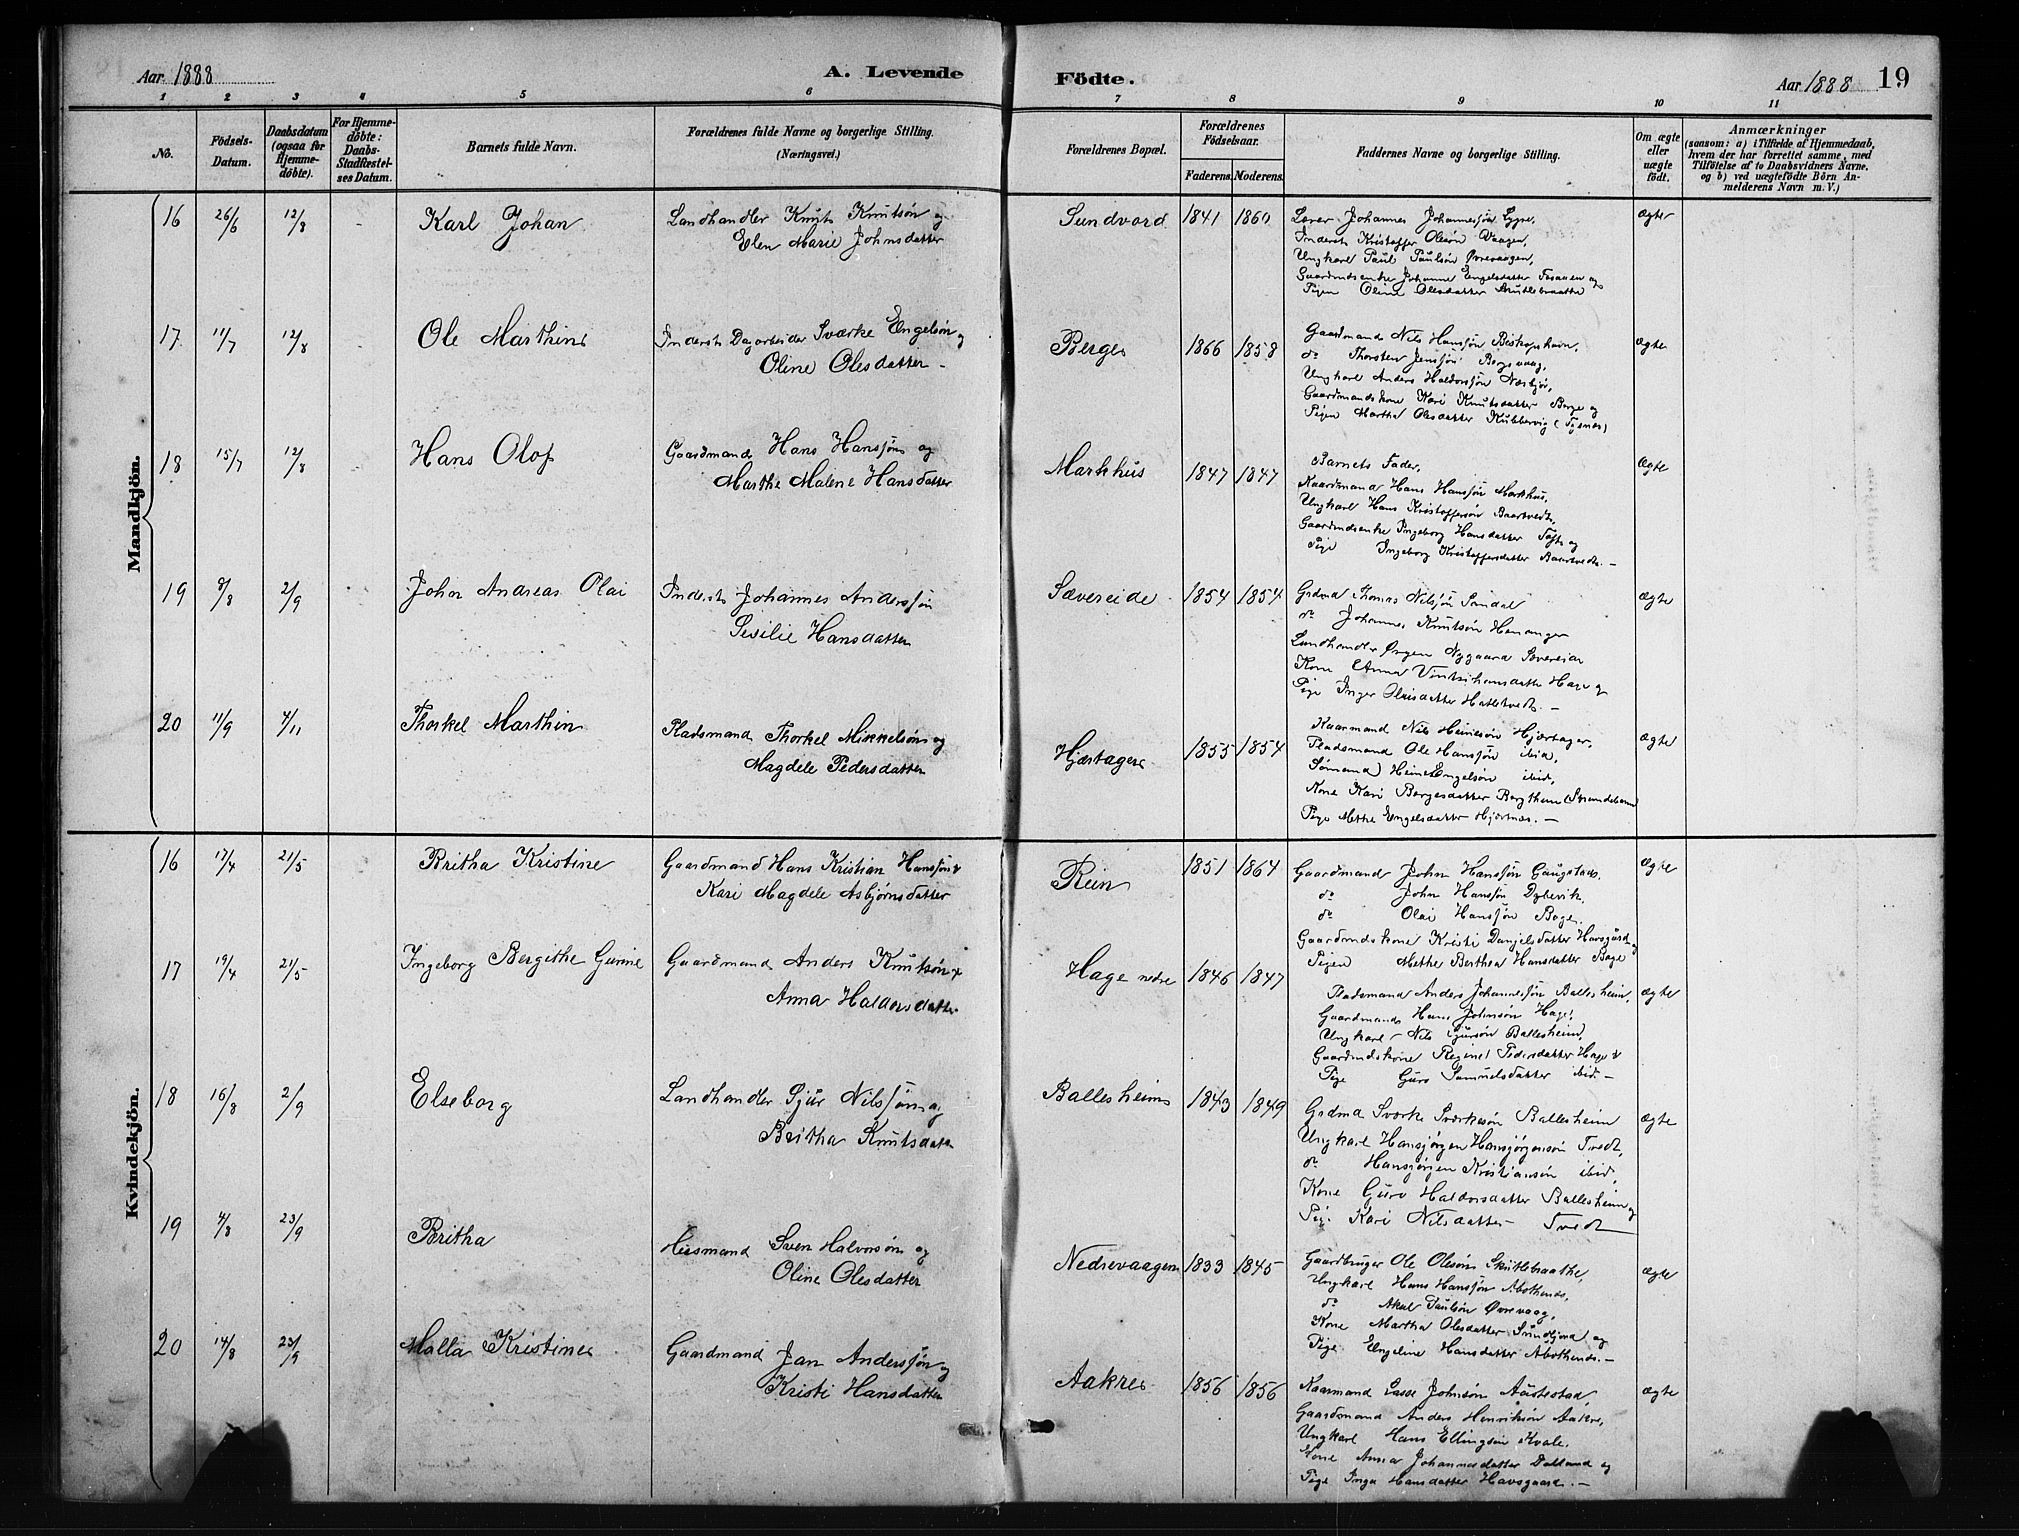 Aar 1888
A. Levende
Födte.
Aar 1888
19
1 2 3 4 5 6 7 8 9 10 11
No.
Födsels-
Datum.
Daabsdatum
(ogsaa for
Hjemme-
döbte).
For Hjemme-
döbte:
Daabs-
Stadfæstel-
ses Datum.
Barnets fulde Navn.
Forældrenes fulde Navne og borgerlige Stilling.
(Næringsvei.)
Forældrenes Bopæl.
Forældrenes
Födselsaar.
Faderens. Moderens.
Faddernes Navne og borgerlige Stilling.
Om ægte
eller
uægte
födt.
Anmærkninger
(saasom: a) i Tilfælde af Hjemmedaab,
hvem der har forrettet samme, med
Tilföielse af to Daabsvidners Navne,
og b) ved uægtefödte Börn An-
melderens Navn m. V.)
Mandkjön.
16 26/6 12/8 Karl Johan
Landhandler Knut Knutsøn og
Elen Marie Johnsdatter
Sundvord 1841 1860
Lærer Johannes Johannessøn Lygre,
Inderst Kristoffer Olesøn Vaagen,
Ungkarl Paul Paulsøn Øvrevaagen,
Gaardmdsenke Johanne Engelsdatter og
Pigen Oline Olesdatter Skutlebraatte
ægte
17 11/7 12/8 Ole Marthin
Inderst Dagarbeider Sværke Engelsøn og
Oline Olesdatter
Berge 1866 1858
Gaardmand Nils Hanssøn Beskophavn,
do Thorsten Jenssøn Borgevaag,
Ungkarl Anders Haldorssøn
Gaardmandskone Kari Knutsdatter Berge og
Pigen Martha Olesdatter Kubbervig
ægte
18 15/7 12/8 Hans Olof
Gaardmand Hans Hanssøn og
Marthe Malene Hansdatter
Markhus 1847 1847
Barnets Fader,
Kaardmand Hans Hanssøn Markhus,
Ungkarl Hans Kristoffersøn Baartvedt,
Gaardmdsenke Ingeborg Hansdatter Toft og
Pige Ingeborg Kristoffersdatter Baartvedt. —
ægte
19 8/8 2/9 John Andreas Olai
Inderst Johannes Anderssøn
Sesilie Hansdatter
Sævereide 1854 1854
Grdmd Thomas Nilssøn Sandal
do Johannes Knutsøn Henanger
Landhandler Ørjen Nygaard Sævereide
Kone Anna Hage og
Pige Inger Olaisdatter Hatletvedt. —
ægte
20 11/9 4/11 Thorkel Marthin
Pladsmand Thorkel Mikkelsøn og
Magdele Pedersdatter
Hjærtager 1855 1854
Kaarmand Nils Heinesøn Hjærtager,
Pladsmand Ole Hanssøn ibid,
Sømand Heine Engelsøn ibid,
Kone Kari Børgesdatter
Pige Methe Engelsdatter Hjærtnes. —
ægte
Kvindekjön.
16 17/4 21/5 Britha Kristine
Gaardmand Hans Kristian Hanssøn &
Kari Magdele Asbjørnsdatter
Rein 1851 1864
Gaardmand John Hanssøn Gaugstad,
do John Hanssøn Dybevik,
do Olai Hanssøn Boge.
Gaardmdskone Kristi Danjelsdatter Havsgaard og
Pigen Methe Berthea Hansdatter Boge
ægte
17 19/4 21/5 Ingeborg Bergithe Gurine
Gaardmand Anders Knutsøn &
Anna Haldorsdatter
Hage nedre 1846 1847
Pladsmand Anders Johannessøn Ballesheim,
Gaardmand Hans Johnsøn Hage,
Ungkarl Nils Sjursøn Ballesheim,
Gaardmdskone Regine Pedersdatter Hage &
Pige Guro Samuelsdatter ibid. —
ægte
18 16/8 2/9 Elseborg
Landhandler Sjur Nilssøn og
Britha Knutsdatter
Ballesheim 1843 1849
Grdmd Sværke Sværkesøn Ballesheim
Ungkarl Hansjørgen Hansjørgensøn Tvedt,
do Hansjørgen Kristiansøn ibid,
Kone Guro Haldorsdatter Ballesheim og
Pige Kari Nilsdatter Tvedt
ægte
19 4/8 23/9 Britha
Husmand Sven Halvorsøn og
Oline Olesdatter
Nedrevaagen 1833 1845
Gaardbruger Ole Olesøn Skutlebraatte,
Ungkarl Hans Hanssøn Abothenes,
do Aksel Paulsøn Øvrevaag,
Kone Martha Olesdatter Sundfjord og
Pige Engeline Hansdatter Abothenes. —
ægte
20 14/8 23/9 Malla Kristine
Gaardmand Jan Anderssøn og
Kristi Hansdatter
Aakre 1856 1856
Kaarmand Lasse Johnsøn Austestad,
Gaardmand Anders Henriksøn Aakre,
Ungkarl Hans Ellingsøn Kvale.
Kone Anna Johannesdatter Dalland og
Pige Inga Hansdatter Havsgaard. —
ægte